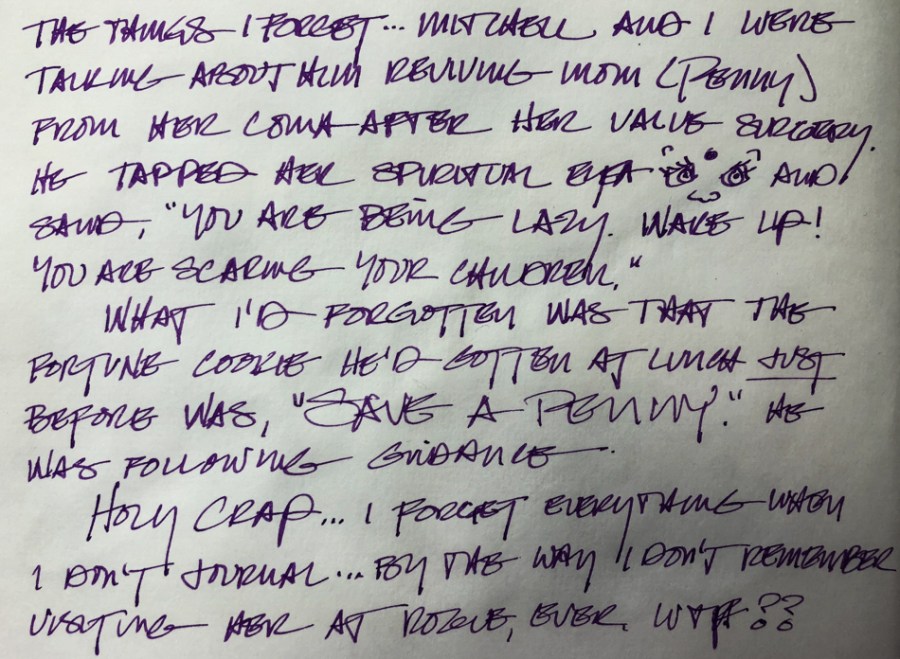 THE THINGS I FORGET... MITCHELL AND I WERE
TALKING ABOUT HIM REVIVING MOM (PENNY)
FROM HER COMA AFTER HER VALVE SURGERY.
HE TAPPED HER SPIRITUAL EYE AND
SAID, "YOU ARE BEING LAZY. WAKE UP!
YOU ARE SCARING YOUR CHILDREN."
WHAT I'D FORGOTTEN WAS THAT THE
FORTUNE COOKIE HE'D GOTTEN AT LUNCH JUST
BEFORE WAS, "SAVE A PENNY." HE
WAS FOLLOWING GUIDANCE.
HOLY CRAP... I FORGET EVERYTHING WHEN
I DON'T JOURNAL... BY THE WAY I DON'T REMEMBER
VISITING HER AT ROGUE, EVER. WTF??